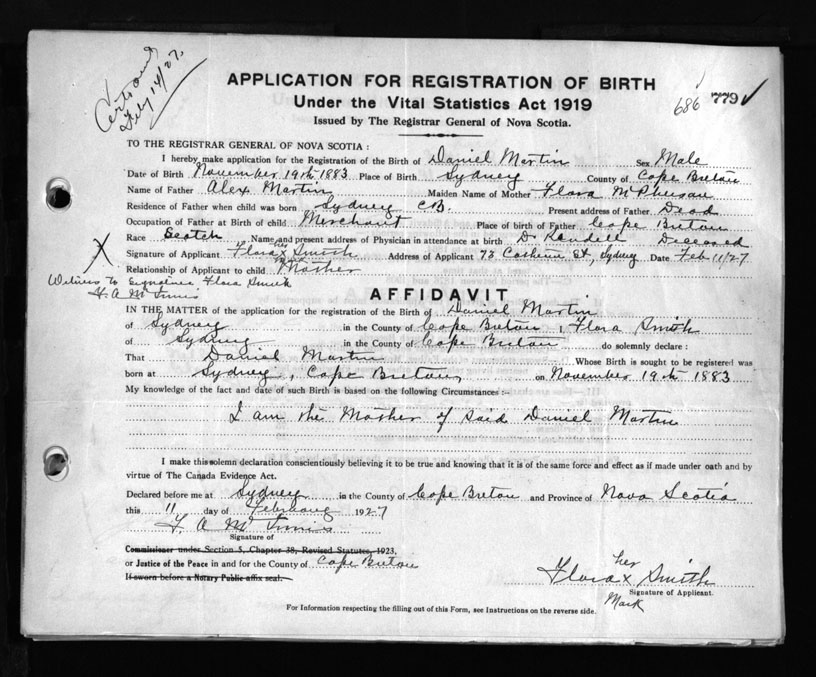 Feby 14/27.
APPLICATION FOR REGISTRATION OF BIRTH
Under the Vital Statistics Act 1919
Issued by The Registrar General of Nova Scotia.
686 779
TO THE REGISTRAR GENERAL OF NOVA SCOTIA :
I hereby make application for the Registration of the Birth of Daniel Martin Sex Male
Date of Birth November 19th 1883 Place of Birth Sydney County of Cape Breton
Name of Father Alex Martin Maiden Name of Mother Flora McPherson
Residence of Father when child was born Sydney C.B. Present address of Father Dead
Occupation of Father at Birth of child Merchant Place of birth of Father Cape Breton
Race Scotch Name and present address of Physician in attendance at birth Dr Kendell Deceased
Signature of Applicant Flora her x mark Smith Address of Applicant 73 St., Sydney Date Feb 11/27
Relationship of Applicant to child Mother
Witness To Signature Flora Smith
AFFIDAVIT
IN THE MATTER of the application for the registration of the Birth of Daniel Martin
of Sydney in the County of Cape Breton, I Flora Smith
of Sydney in the County of Cape Breton do solemnly declare :
That Daniel Martin Whose Birth is sought to be registered was
born at Sydney, Cape Breton, on November 19th 1883
My knowledge of the fact and date of such Birth is based on the following Circumstances :-
I am the Mother of said Daniel Martin
I make this solemn declaration conscientiously believing it to be true and knowing that it is of the same force and effect as if made under oath and by
virtue of The Canada Evidence Act.
Declared before me at Sydney in the County of Cape Breton and Province of Nova Scotia
this 11 day of February 1927
Signature of
Commissioner under Section 5, Chapter 38, Revised Statutes, 1923,
or Justice of the Peace in and for the County of Cape Breton
If sworn before a Notary Public affix seal.
Flora her x Mark Smith
Signature of Applicant.
For Information respecting the filling out of this Form, see Instructions on the reverse side.